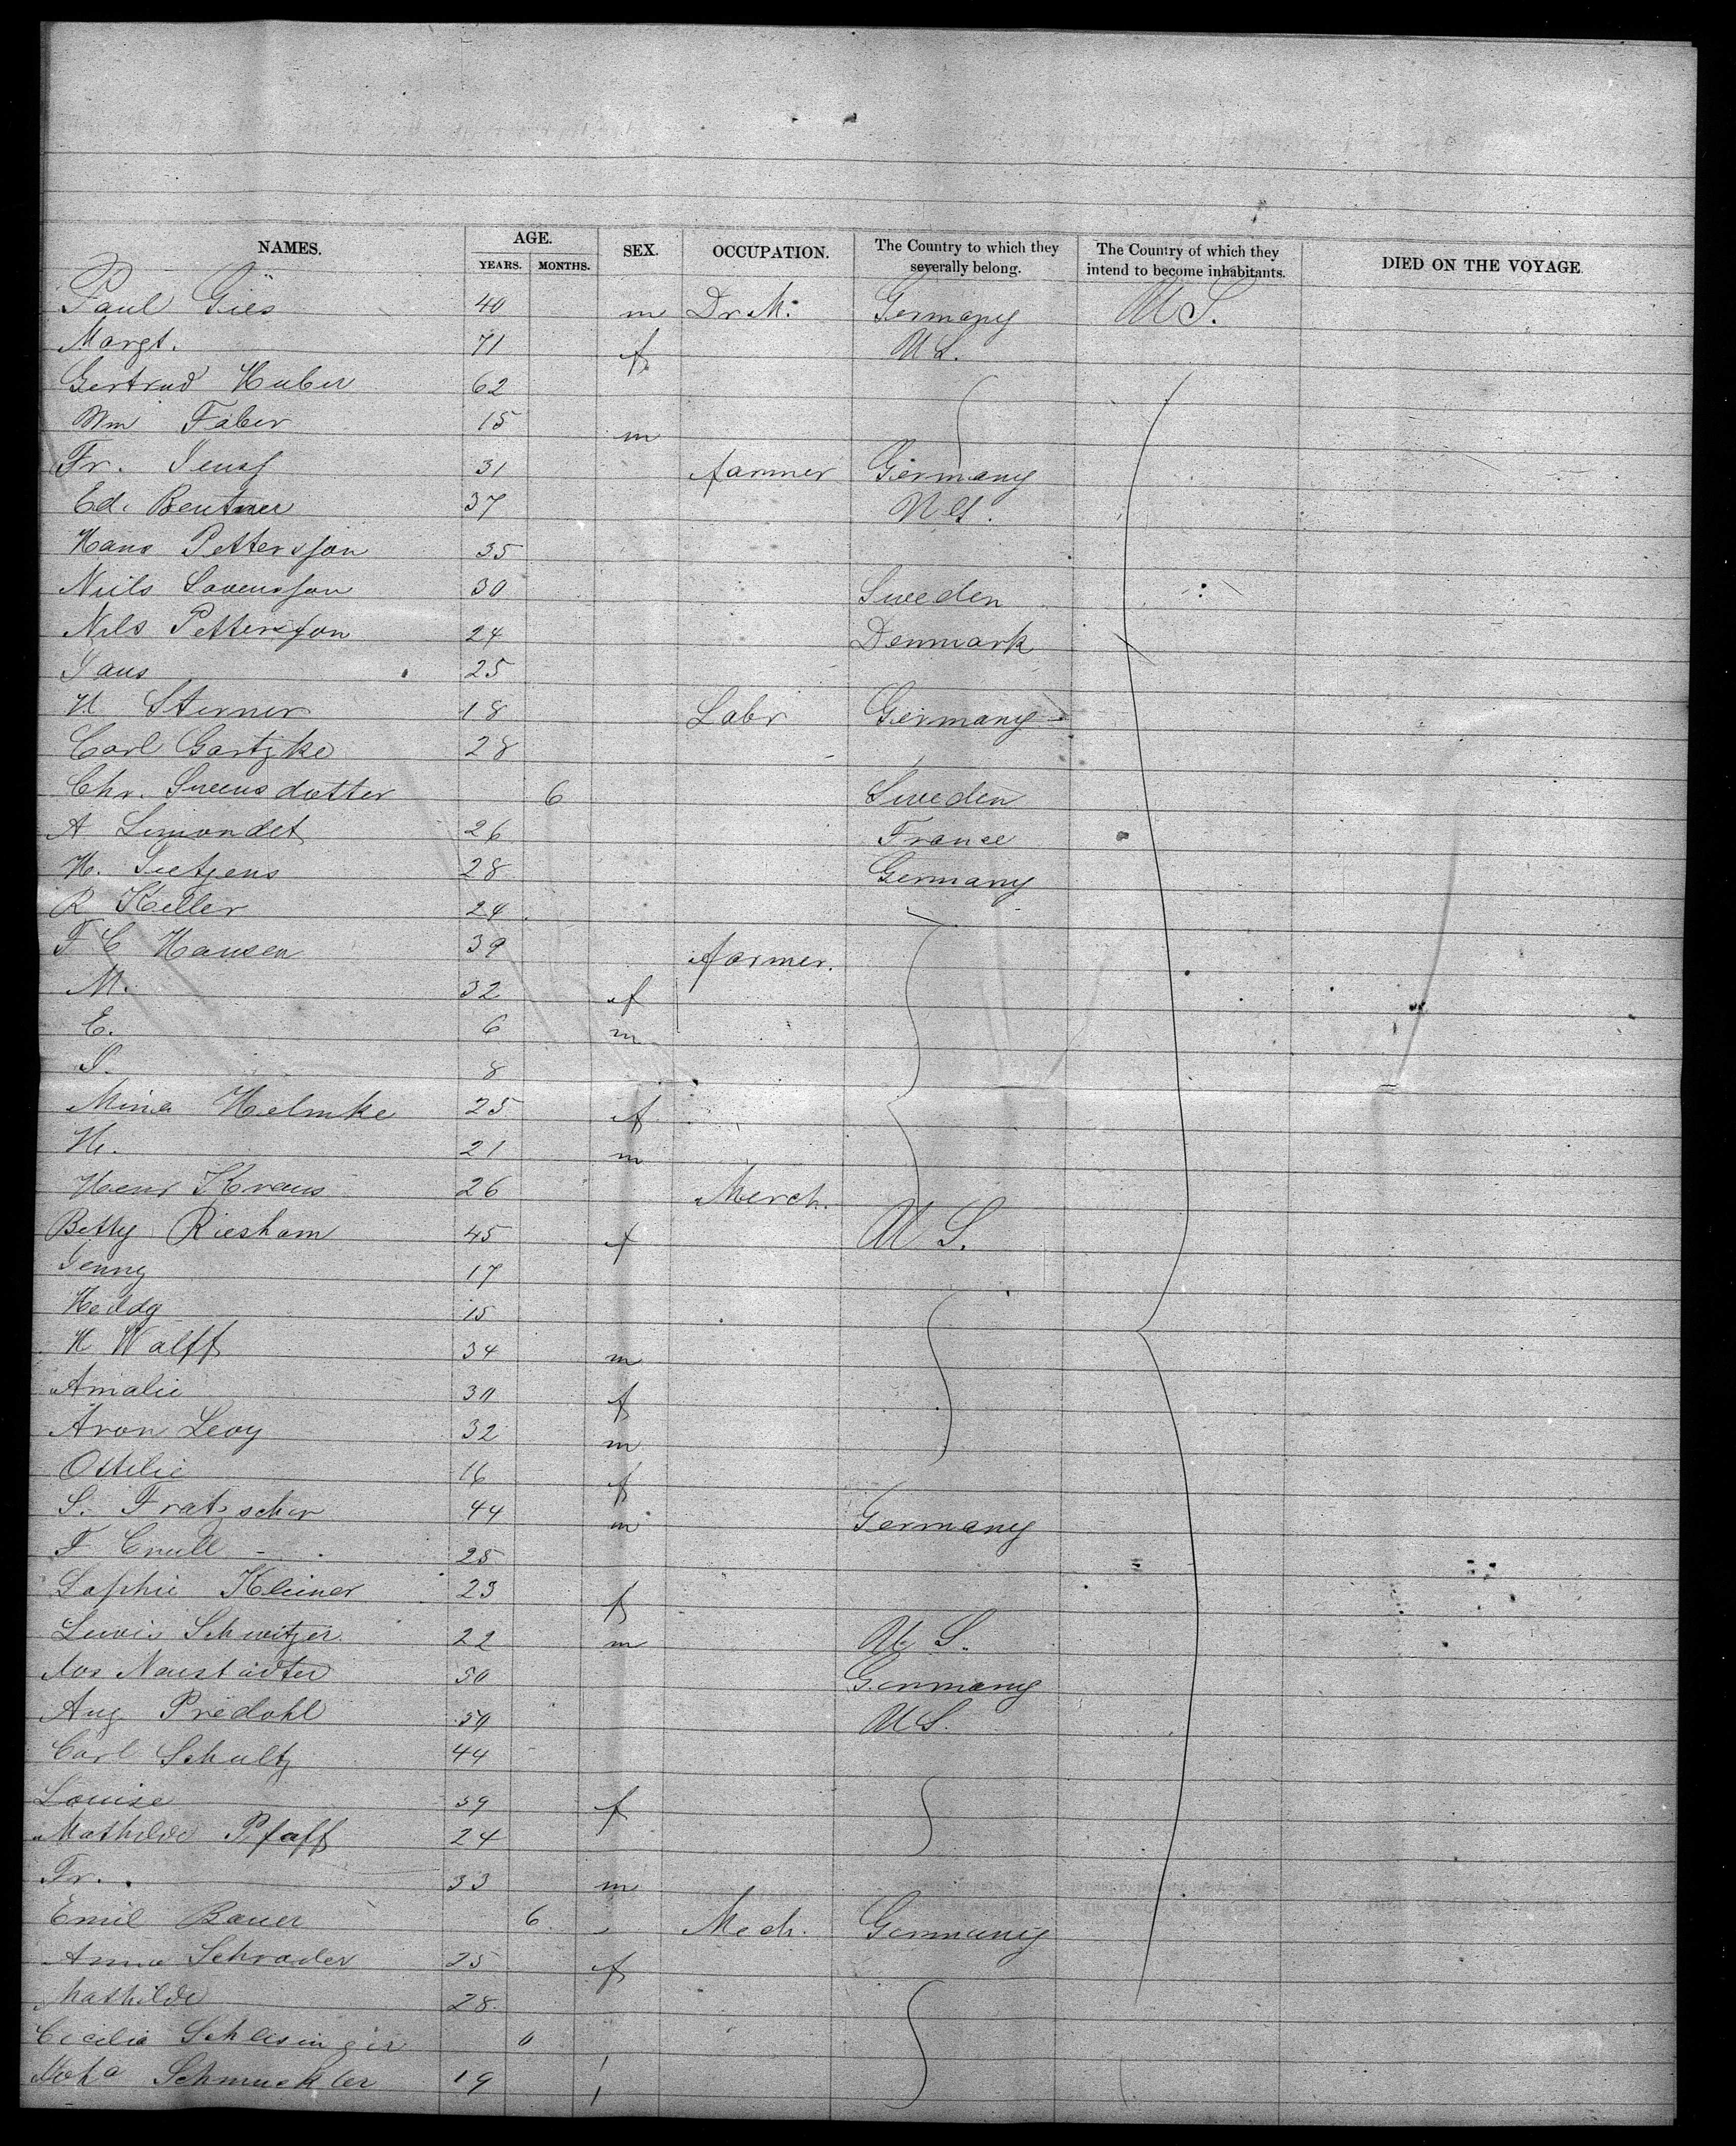 NAMES. AGE. SEX. OCCUPATION. The Country to which they severally belong. The Country of which they intend to become inhabitants. DIED ON THE VOYAGE.
YEARS. MONTHS.
Paul Gies 40 m Dr. M. Germany U S.
Margt. 71 f U S.
Gertrud Huber 62
Wm Faber 15 m
Fr. 31 farmer Germany
Ed. Beutner 37 U S.
Hans Pettersson 35
Niils 30 Sweden
Nils Pettersson 24 Denmark
25
H Sterner 18 Labr Germany
Carl Gartzke 28
Chr. Svensdotter 6 Sweden
A Simondet 26 France
H. Tietjens 28 Germany
R Keller 24
F C Hansen 39 farmer.
M. 32 f
E. 6 m
8
Mina Helmke 25 f
H. 21 m
Henr Kraus 26 Merch.
Betty Riesham 45 f U S.
Jenny 17
Heddg 15
H Walff 34 m
Amalie 30 f
Aron Levy 32 m
Ottilie 16 f
S. Fratzscher 44 m Germany
F Crull 25
Sophie Kleiner 23 f
Lewis Schwitzer 22 m U S.
Jos Neustädter 50 Germany
Aug Predohl 50 U S.
Carl Schultz 44
Louise 39 f
Mathilde Pfaff 24
Fr. 33 m
Emil Bauer 6 Mech. Germany
Anna Schrader 25 f
Mathilde 28
Cecilia Schlesinger 0
Joha Schmuckler 19